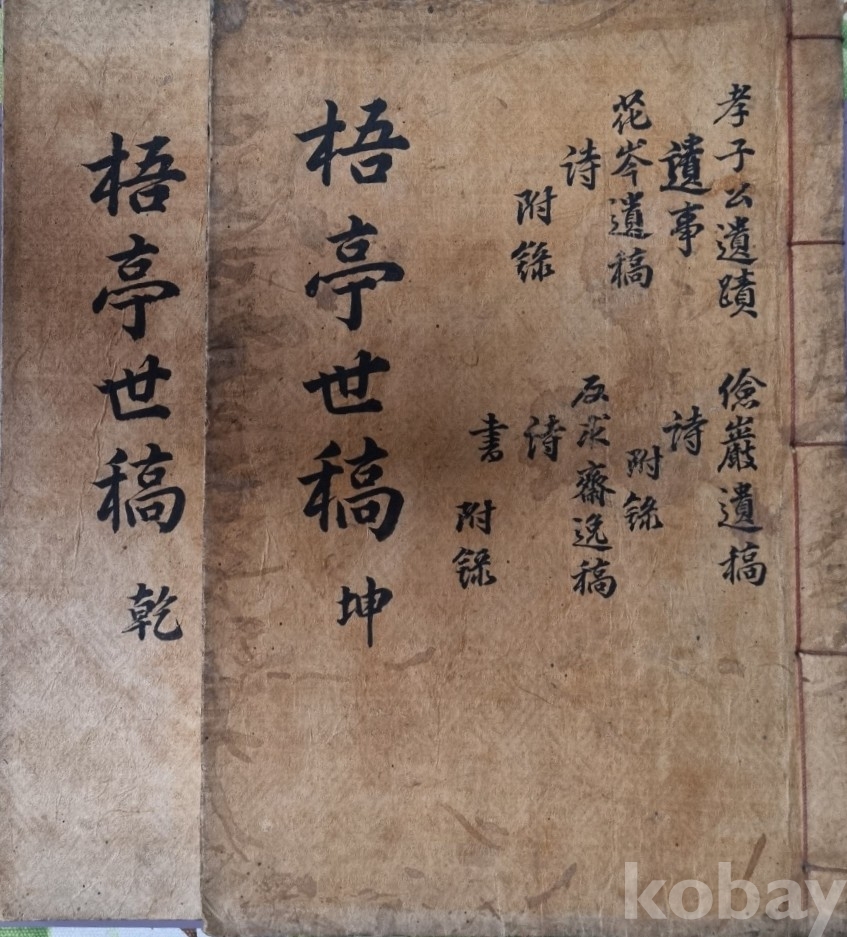 孝子公遺蹟
遺事
花岑遺稿
詩
附錄
儉巖遺稿
詩
附錄
反求齋逸稿
詩
書
附錄
梧亭世稿 坤
梧亭世稿 乾
kobay